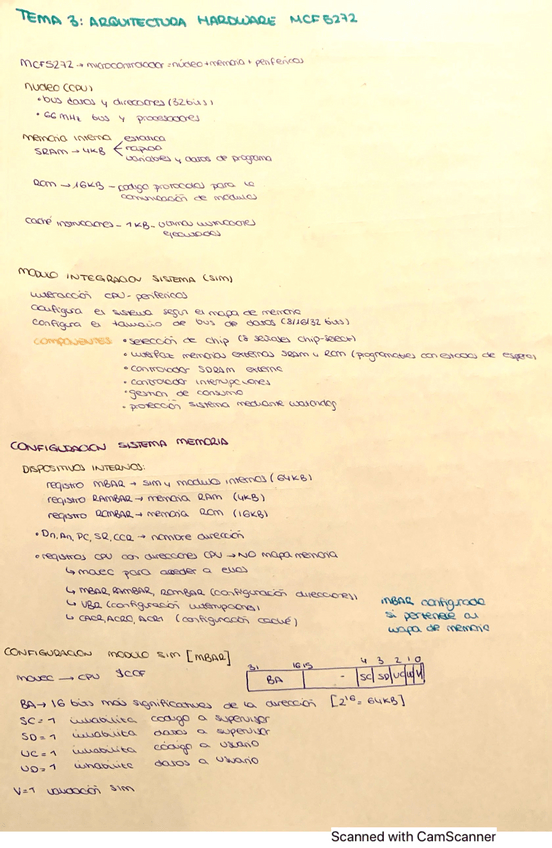 TEMA 3: ARQUITECTURA HARDWARE MCF5272
MCF5272 → microcontrolador = núcleo + memoria + periféricos
núcleo (CPU)
• bus datos y direcciones (32 bits)
• 66 MHz bus y procesadores
memoria interna
SRAM → 4KB
estática
rápida
variables y datos de programa
ROM → 16KB - código protocolos para la
comunicación de módulos
caché instrucciones - 1KB - últimas instrucciones
ejecutadas
MODULO INTEGRACION SISTEMA (SIM)
interacción CPU - periféricos
configura el sistema según el mapa de memoria
configura el tamaño de bus de datos (8/16/32 bits)
COMPONENTES
• selección de chip (8 señales chip-select)
• interfaz memorias externas SRAM y ROM (programables con estados de espera)
• controlador SDRAM externa
• controlador interrupciones
• gestión de consumo
• protección sistema mediante watchdog
CONFIGURACION SISTEMA MEMORIA
DISPOSITIVOS INTERNOS:
registro MBAR → SIM y módulos internos (64KB)
registro RAMBAR → memoria RAM (4KB)
registro ROMBAR → memoria ROM (16KB)
• Dn, An, PC, SR, CCR → nombre dirección
• registros CPU con direcciones CPU → NO mapa memoria
↳ movec para acceder a ellos
↳ MBAR, RAMBAR, ROMBAR (configuración direcciones)
↳ VBR (configuración interrupciones)
↳ CACR, ACR0, ACR1 (configuración caché)
MBAR configurado
si pertenece al
mapa de memoria
CONFIGURACION MODULO SIM [MBAR]
movec → CPU $C0F
31 16 15 4 3 2 1 0
BA - SC SD UC UD V
BA → 16 bits más significativos de la dirección [2^16 = 64KB]
SC = 1 inhabilita código a supervisor
SD = 1 inhabilita datos a supervisor
UC = 1 inhabilita código a usuario
UD = 1 inhabilita datos a usuario
V=1 validación SIM
Scanned with CamScanner